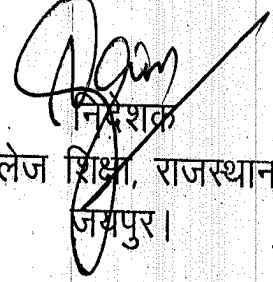 निदेशक
लेज शिक्षा, राजस्थान
जयपुर।